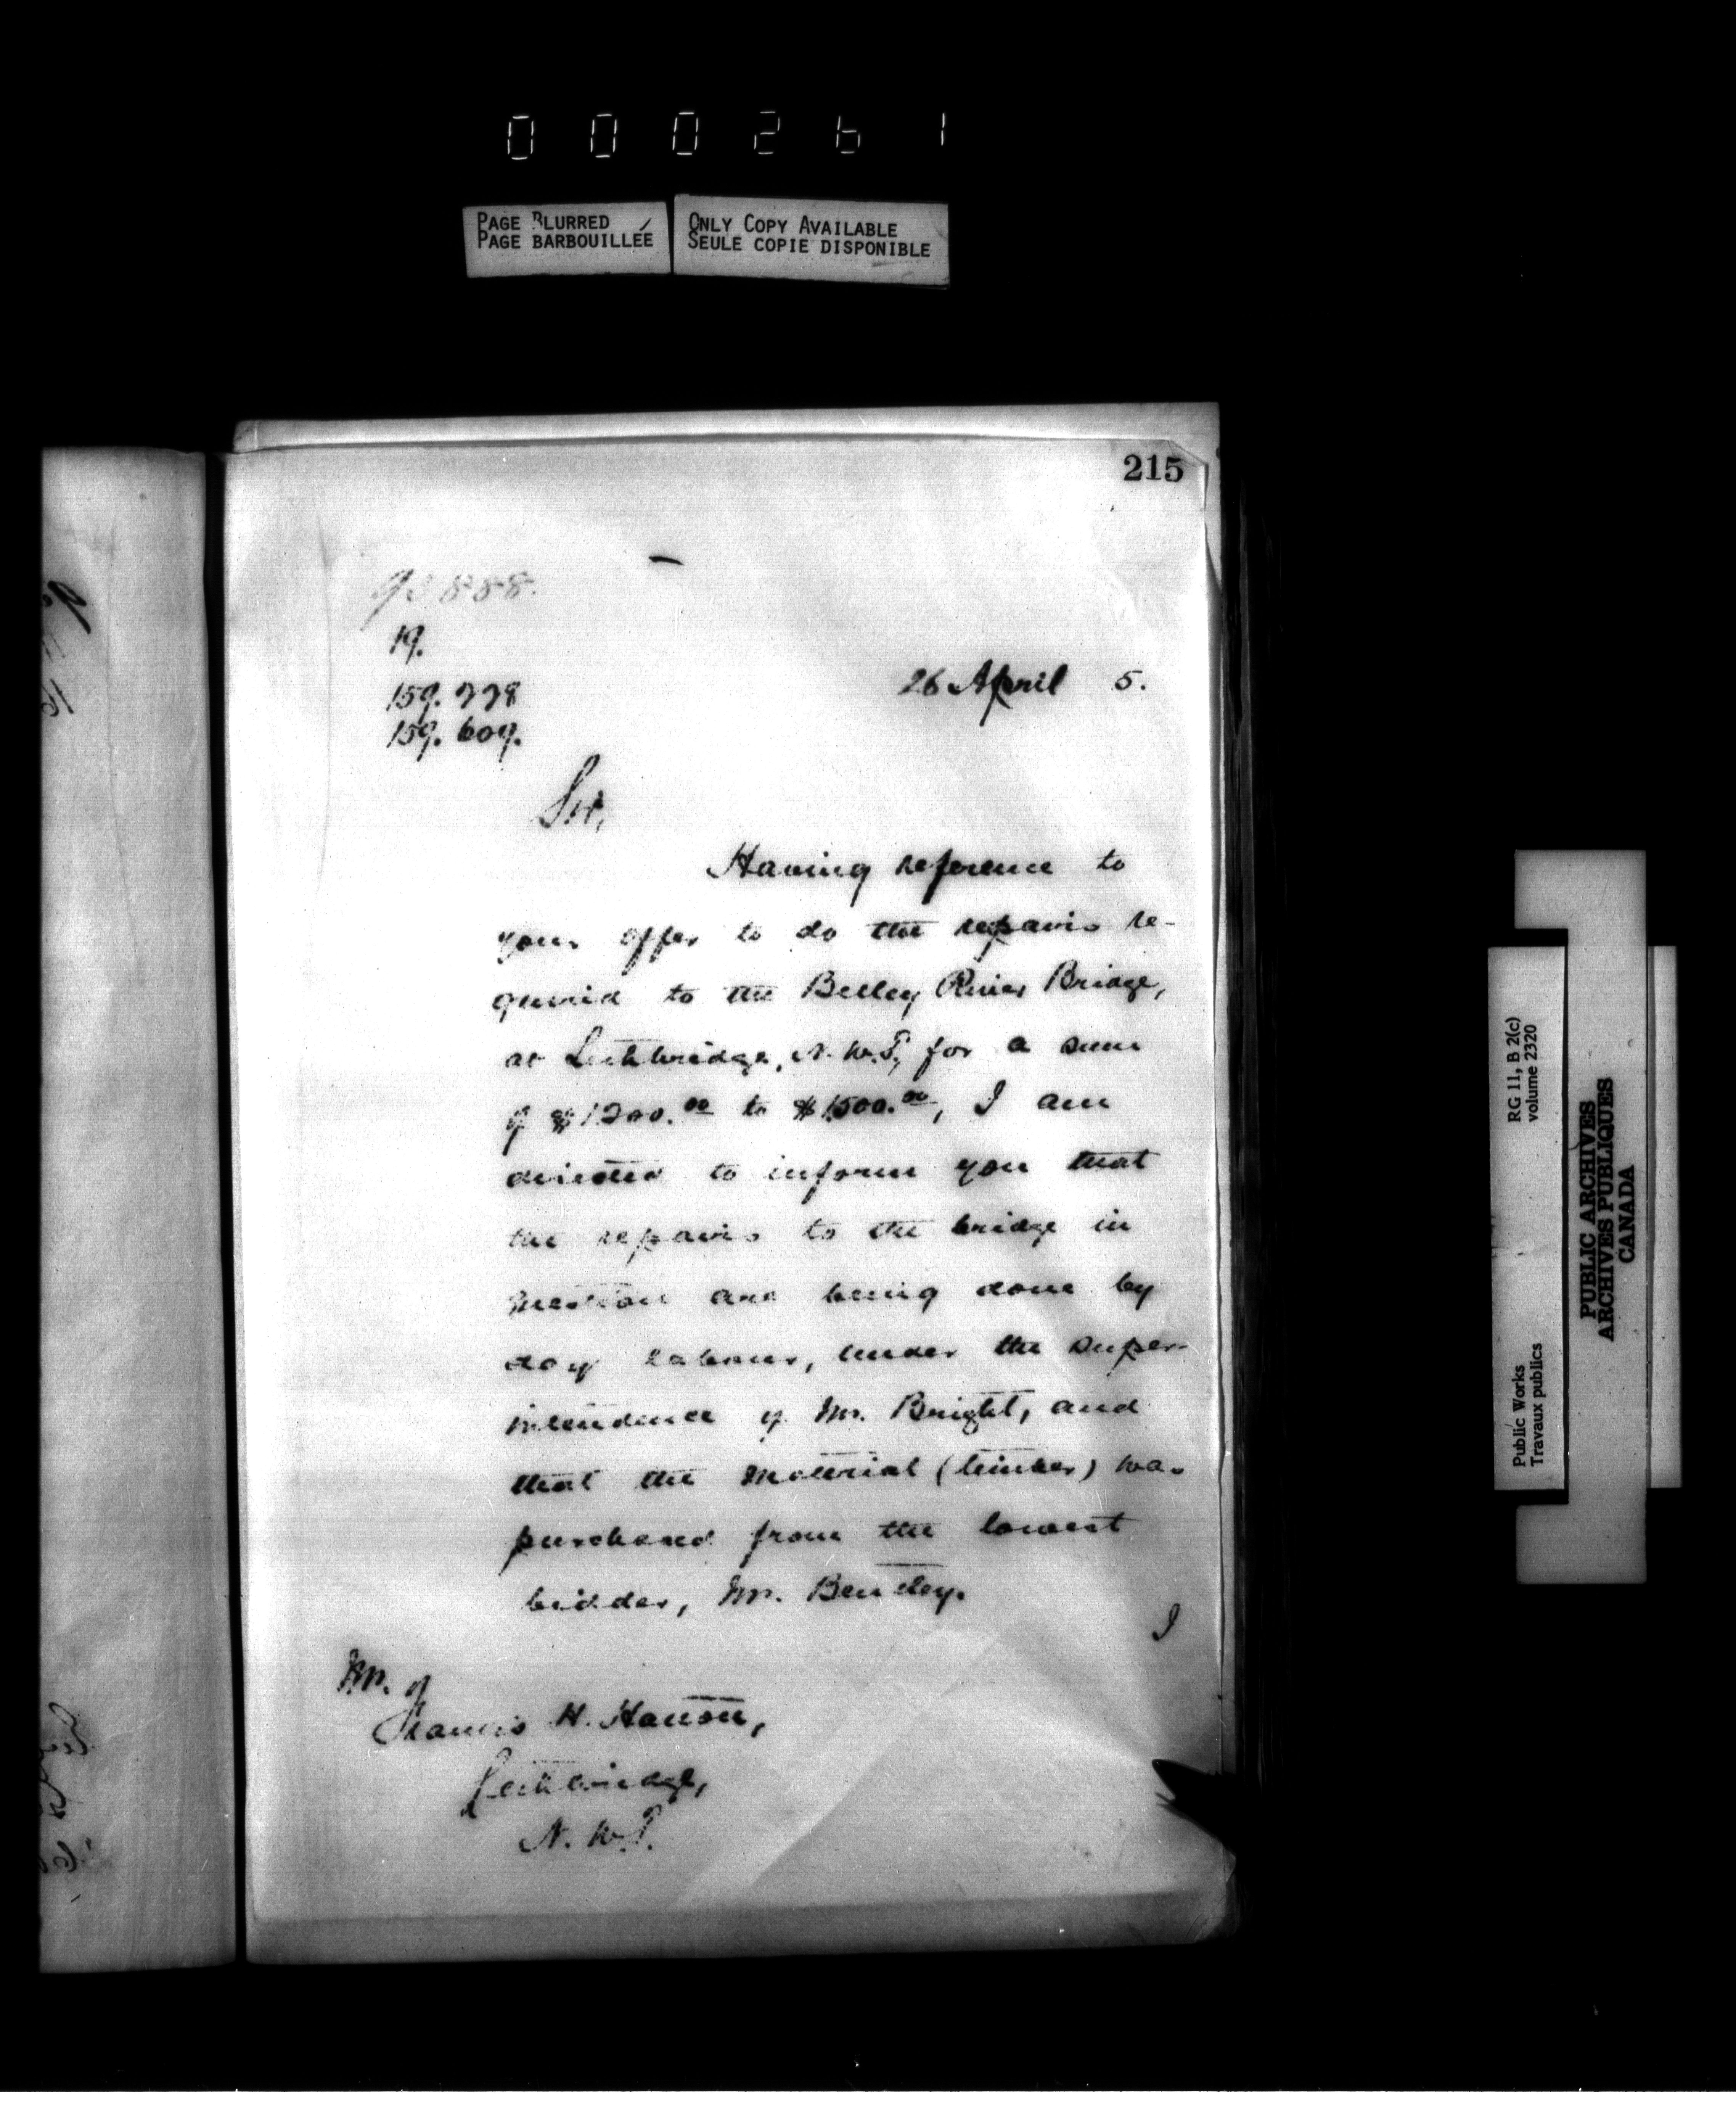 000261
PAGE BLURRED
PAGE BARBOUILLÉE
ONLY COPY AVAILABLE
SEULE COPIE DISPONIBLE
215
19.
159.778
159.609.
26 April 5.
Sir,
Having reference to
your offer to do the repairs re-
quired to the Belley River Bridge,
at Lethbridge, N.W.T, for a sum
of $1200.00 to $1500.00, I am
directed to inform you that
the repairs to the bridge in
question are being done by
day labour, under the super-
intendence of Mr. Bright, and
that the material (timber) was
purchased from the lowest
bidder, Mr. Bentley.
I
Mr.
Francis H. Hanson,
Lethbridge,
N.W.T.
Public Works
Travaux publics
RG 11, B 2(c)
volume 2320
PUBLIC ARCHIVES
ARCHIVES PUBLIQUES
CANADA